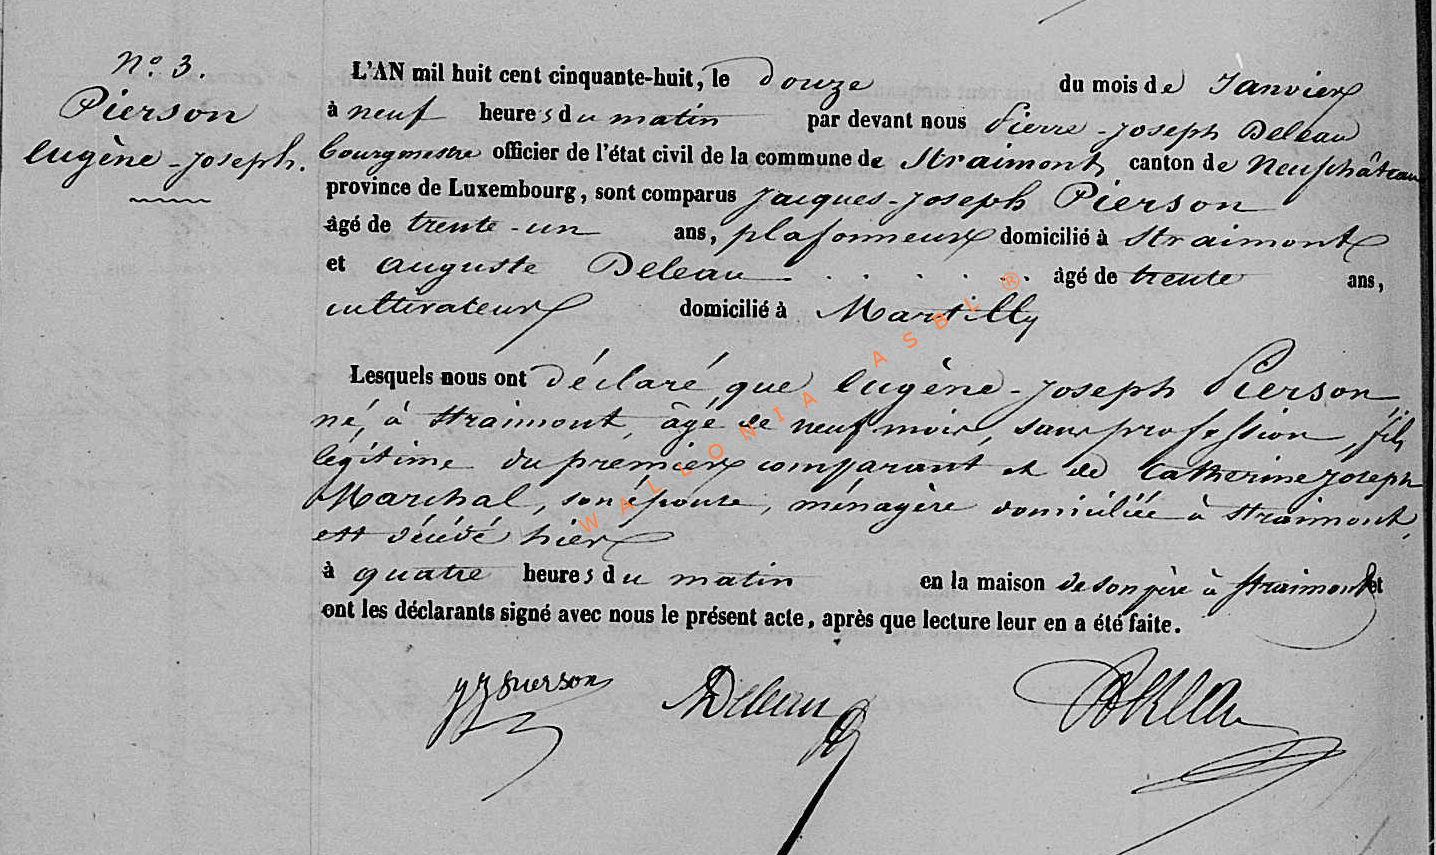 N° 3.
Pierson
Eugène-Joseph.
L'AN mil huit cent cinquante-huit, le douze du mois de Janvier
à neuf heures du matin par devant nous Pierre-Joseph Deleau
bourgmestre officier de l'état civil de la commune de Straimont, canton de Neufchâteau
province de Luxembourg, sont comparus Jacques-Joseph Pierson
âgé de trente-un ans, plafonneur domicilié à Straimont
et Auguste Deleau âgé de trente ans,
cultivateur domicilié à Martilly
Lesquels nous ont déclaré que Eugène-Joseph Pierson,
né à Straimont, âgé de neuf mois, sans profession, fils
légitime du premier comparant et de Catherine Joseph
Marchal, son épouse, ménagère domiciliée à Straimont,
est décédé hier
à quatre heures du matin en la maison de son père à Straimont et
ont les déclarants signé avec nous le présent acte, après que lecture leur en a été faite.
JJ Pierson ADeleau
WALLONIA ASBL ®